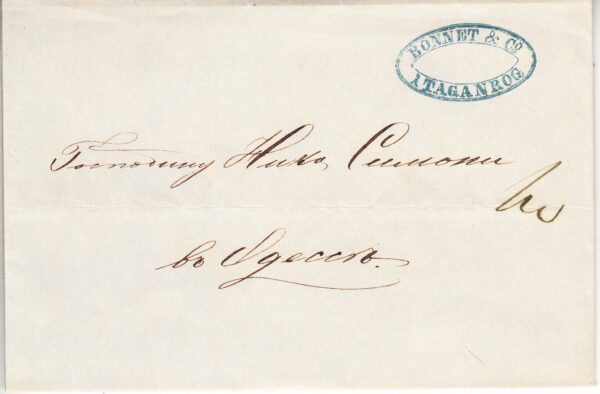 BONNET & Cº
A TAGANROG
Господину Нико Симони
въ Одессѣ.